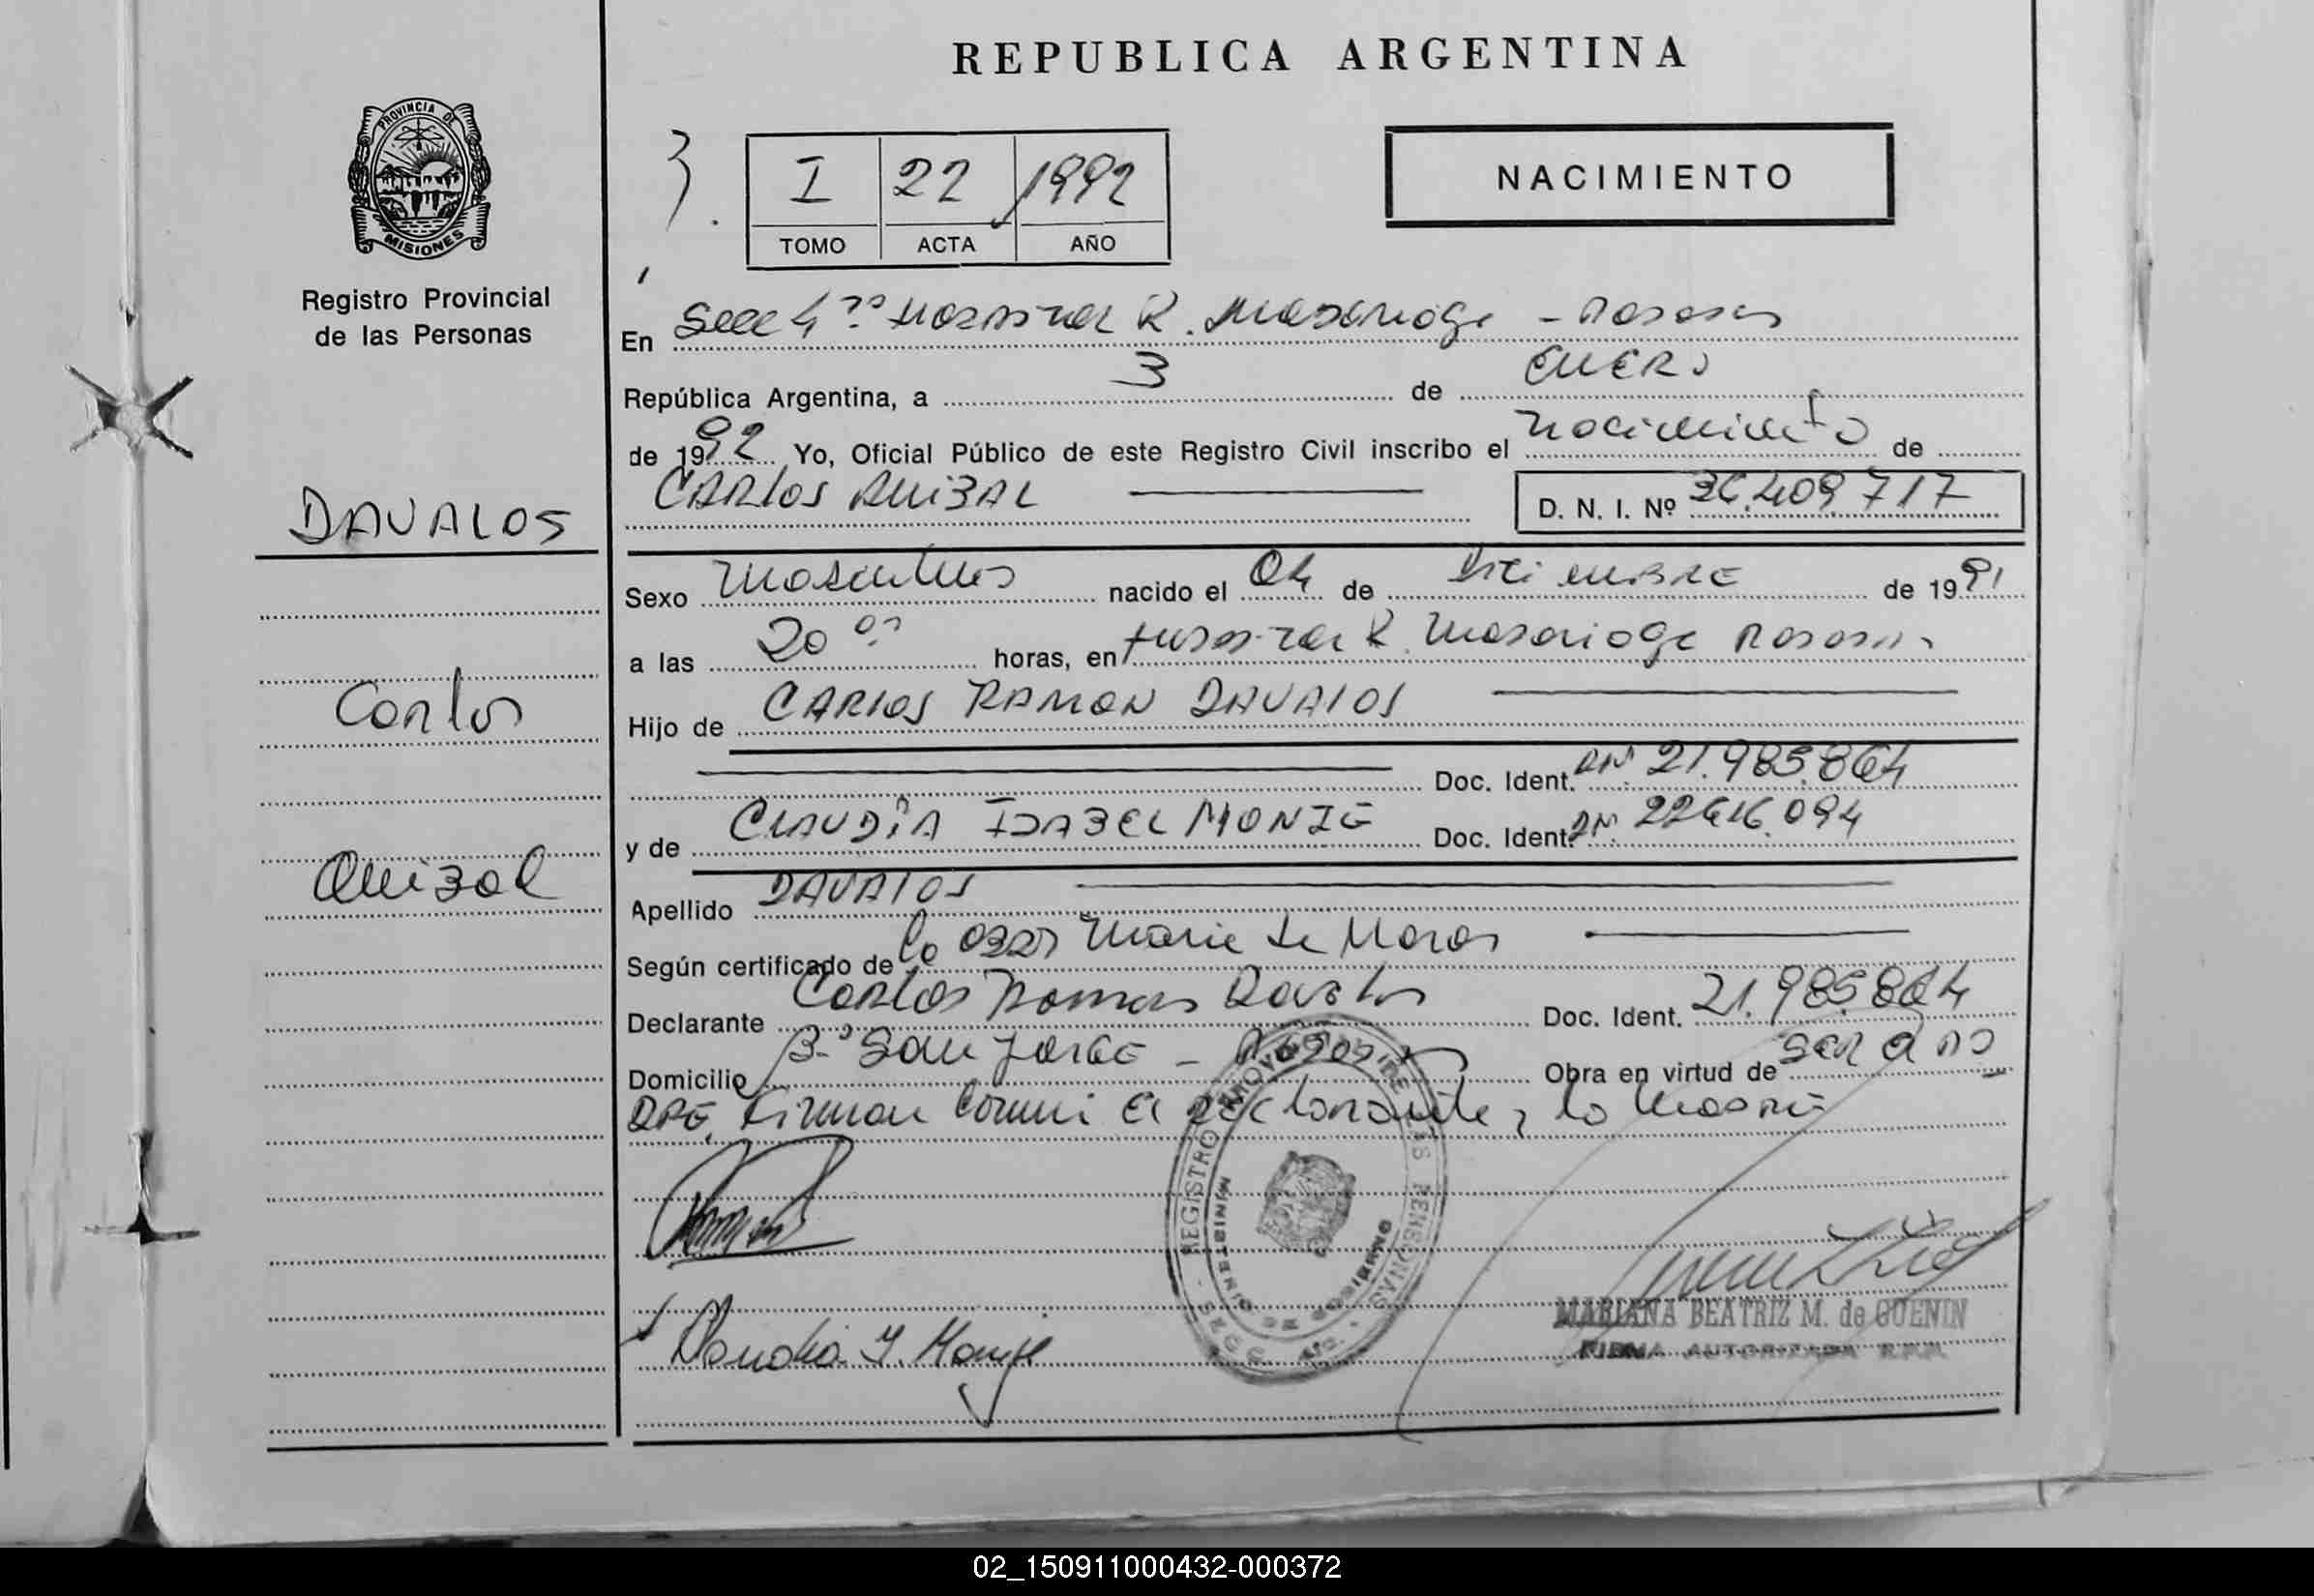 REPUBLICA ARGENTINA
PROVINCIA DE MISIONES
Registro Provincial
de las Personas
3.
I 22 1992
TOMO ACTA AÑO
NACIMIENTO
En Secc 4ta Hospital R. Madariaga - Posadas
República Argentina, a 3 de ENERO
de 1992 Yo, Oficial Público de este Registro Civil inscribo el nacimiento de
CARLOS ANIBAL D. N. I. Nº 36.409.717
DAVALOS
Carlos
Anibal
Sexo Masculino nacido el 04 de Diciembre de 1991
a las 20 horas, en Hospital R. Madariaga Posadas
Hijo de CARLOS RAMON DAVALOS
Doc. Ident. 21.985.864
y de CLAUDIA ISABEL MONJE Doc. Ident. 22.616.094
Apellido DAVALOS
Según certificado de la Obst Maria de Moros
Declarante Carlos Ramon Davalos Doc. Ident. 21.985.864
Domicilio Bº San JORGE - Posadas Obra en virtud de ser el
PDRE. Firman Conmi el declarante y la Madre
REGISTRO PROVINCIAL DE LAS PERSONAS
MINISTERIO DE GOBIERNO
Claudia I. Monje
MARIANA BEATRIZ M. de GUENIN
FIRMA AUTORIZADA R.P.P.
02_150911000432-000372